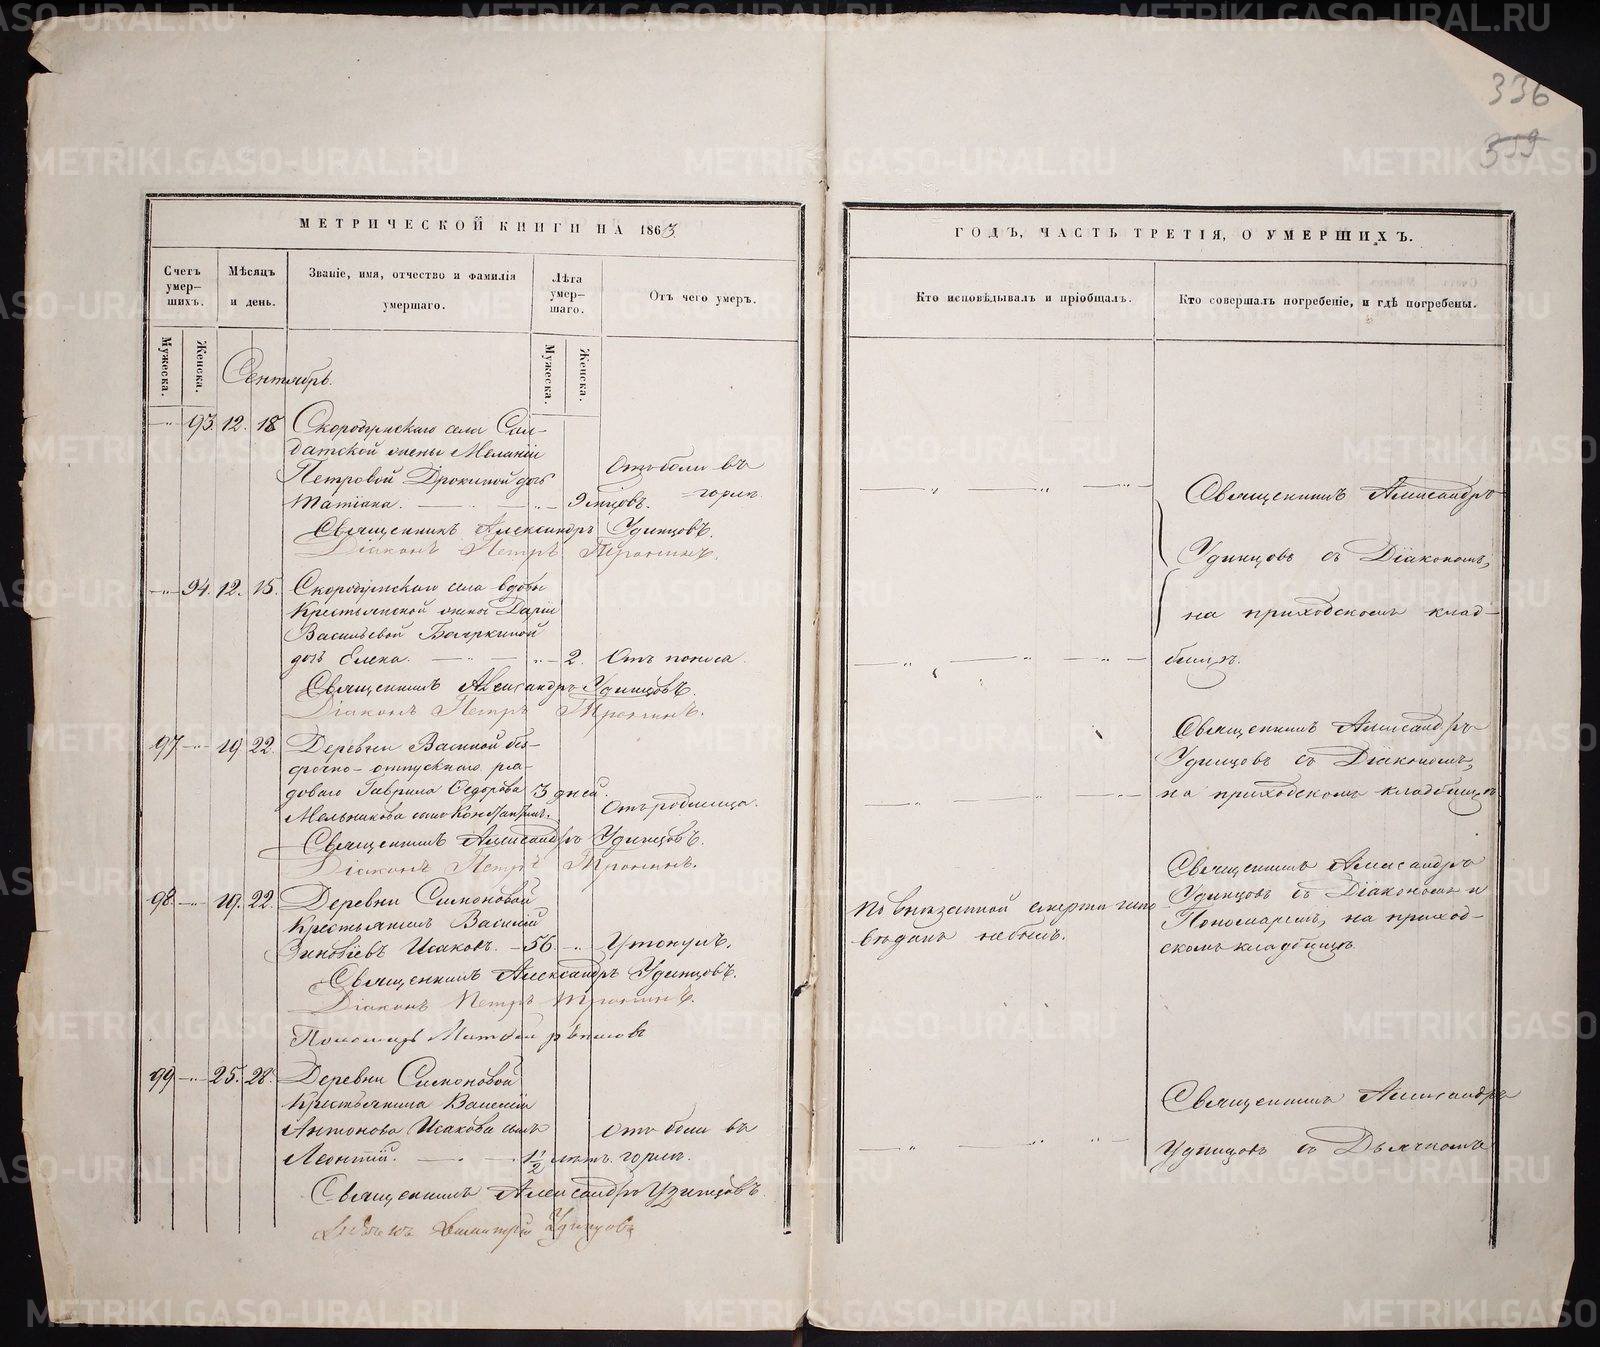 336
359
МЕТРИЧЕСКОЙ КНИГИ НА 1863
ГОДЪ, ЧАСТЬ ТРЕТІЯ, О УМЕРШИХЪ.
Счетъ умер-
шихъ.
Мѣсяцъ
и день.
Званіе, имя, отчество и фамилія
умершаго.
Лѣта
умер-
шаго.
Отъ чего умеръ.
Кто исповѣдывалъ и пріобщалъ.
Кто совершалъ погребеніе, и гдѣ погребены.
Мужеска.
Женска.
Мужеска.
Женска.
Сентябрь.
93. 12. 18 Скородумскаго села Сол-
датской жены Меланіи
Петровой Дрокиной дочь
Татіана. 9 мѣсцовъ.
Отъ боли въ
горлѣ.
Священникъ Александръ Удинцовъ.
Діаконъ Петръ Тронинъ.
Священникъ Александръ
Удинцовъ съ Діакономъ,
на приходскомъ клад-
бищѣ.
94. 12. 15. Скородумскаго села вдовы
Крестьянской жены Даріи
Васильевой Бояркиной
дочь Елена. 2. Отъ поноса.
Священникъ Александръ Удинцовъ.
Діаконъ Петръ Тронинъ.
97 19 22. Деревни Васиной без-
срочно-отпускнаго ря-
доваго Гаврила Ѳедорова 3 дней.
Мельникова сынъ Константинъ. Отъ родимца.
Священникъ Александръ Удинцовъ.
Діаконъ Петръ Тронинъ.
Священникъ Александръ
Удинцовъ съ Діакономъ,
на приходскомъ кладбищѣ
98. 19. 22. Деревни Симоновой
Крестьянинъ Василій
Зиновіевъ Исаковъ. 56 Утонулъ.
По внезапной смерти испо-
вѣданъ не былъ.
Священникъ Александръ
Удинцовъ съ Діакономъ и
Пономаремъ, на приход-
скомъ кладбищѣ
Священникъ Александръ Удинцовъ.
Діаконъ Петръ Тронинъ.
Пономарь
99 25. 28. Деревни Симоновой
Крестьянина Василія
Антонова Исакова сынъ
Леонтій. 1 1/2 лѣтъ.
Отъ боли въ
горлѣ.
Священникъ Александръ Удинцовъ
Дьячекъ Димитрій Удинцовъ
Священникъ Александръ
Удинцовъ съ Дьячкомъ
METRIKI.GASO-URAL.RU